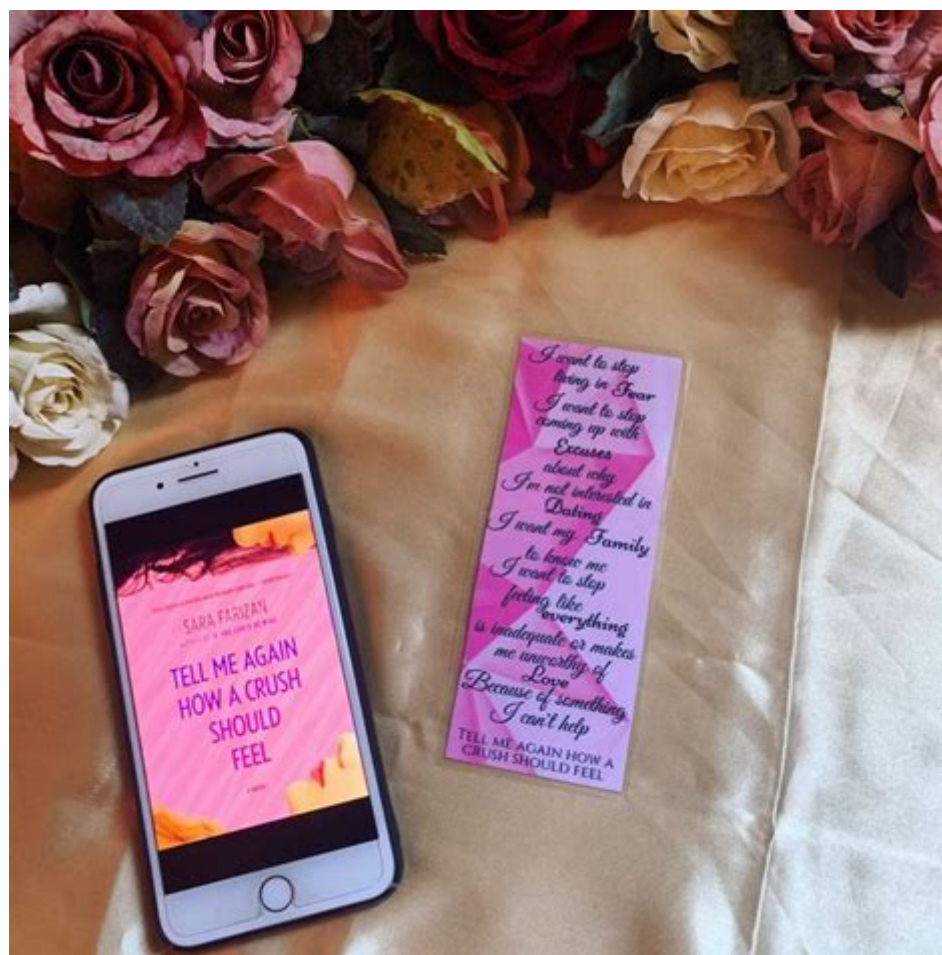 SARA FARIZAN
TELL ME AGAIN
HOW A CRUSH
SHOULD
FEEL
I want to stop
living in Fear
I want to stop
coming up with
Excuses
about why
I'm not interested in
Dating
I want my Family
to know me
I want to stop
feeling like
everything
is inadequate or makes
me unworthy of
Love
Because of something
I can't help
TELL ME AGAIN HOW A
CRUSH SHOULD FEEL